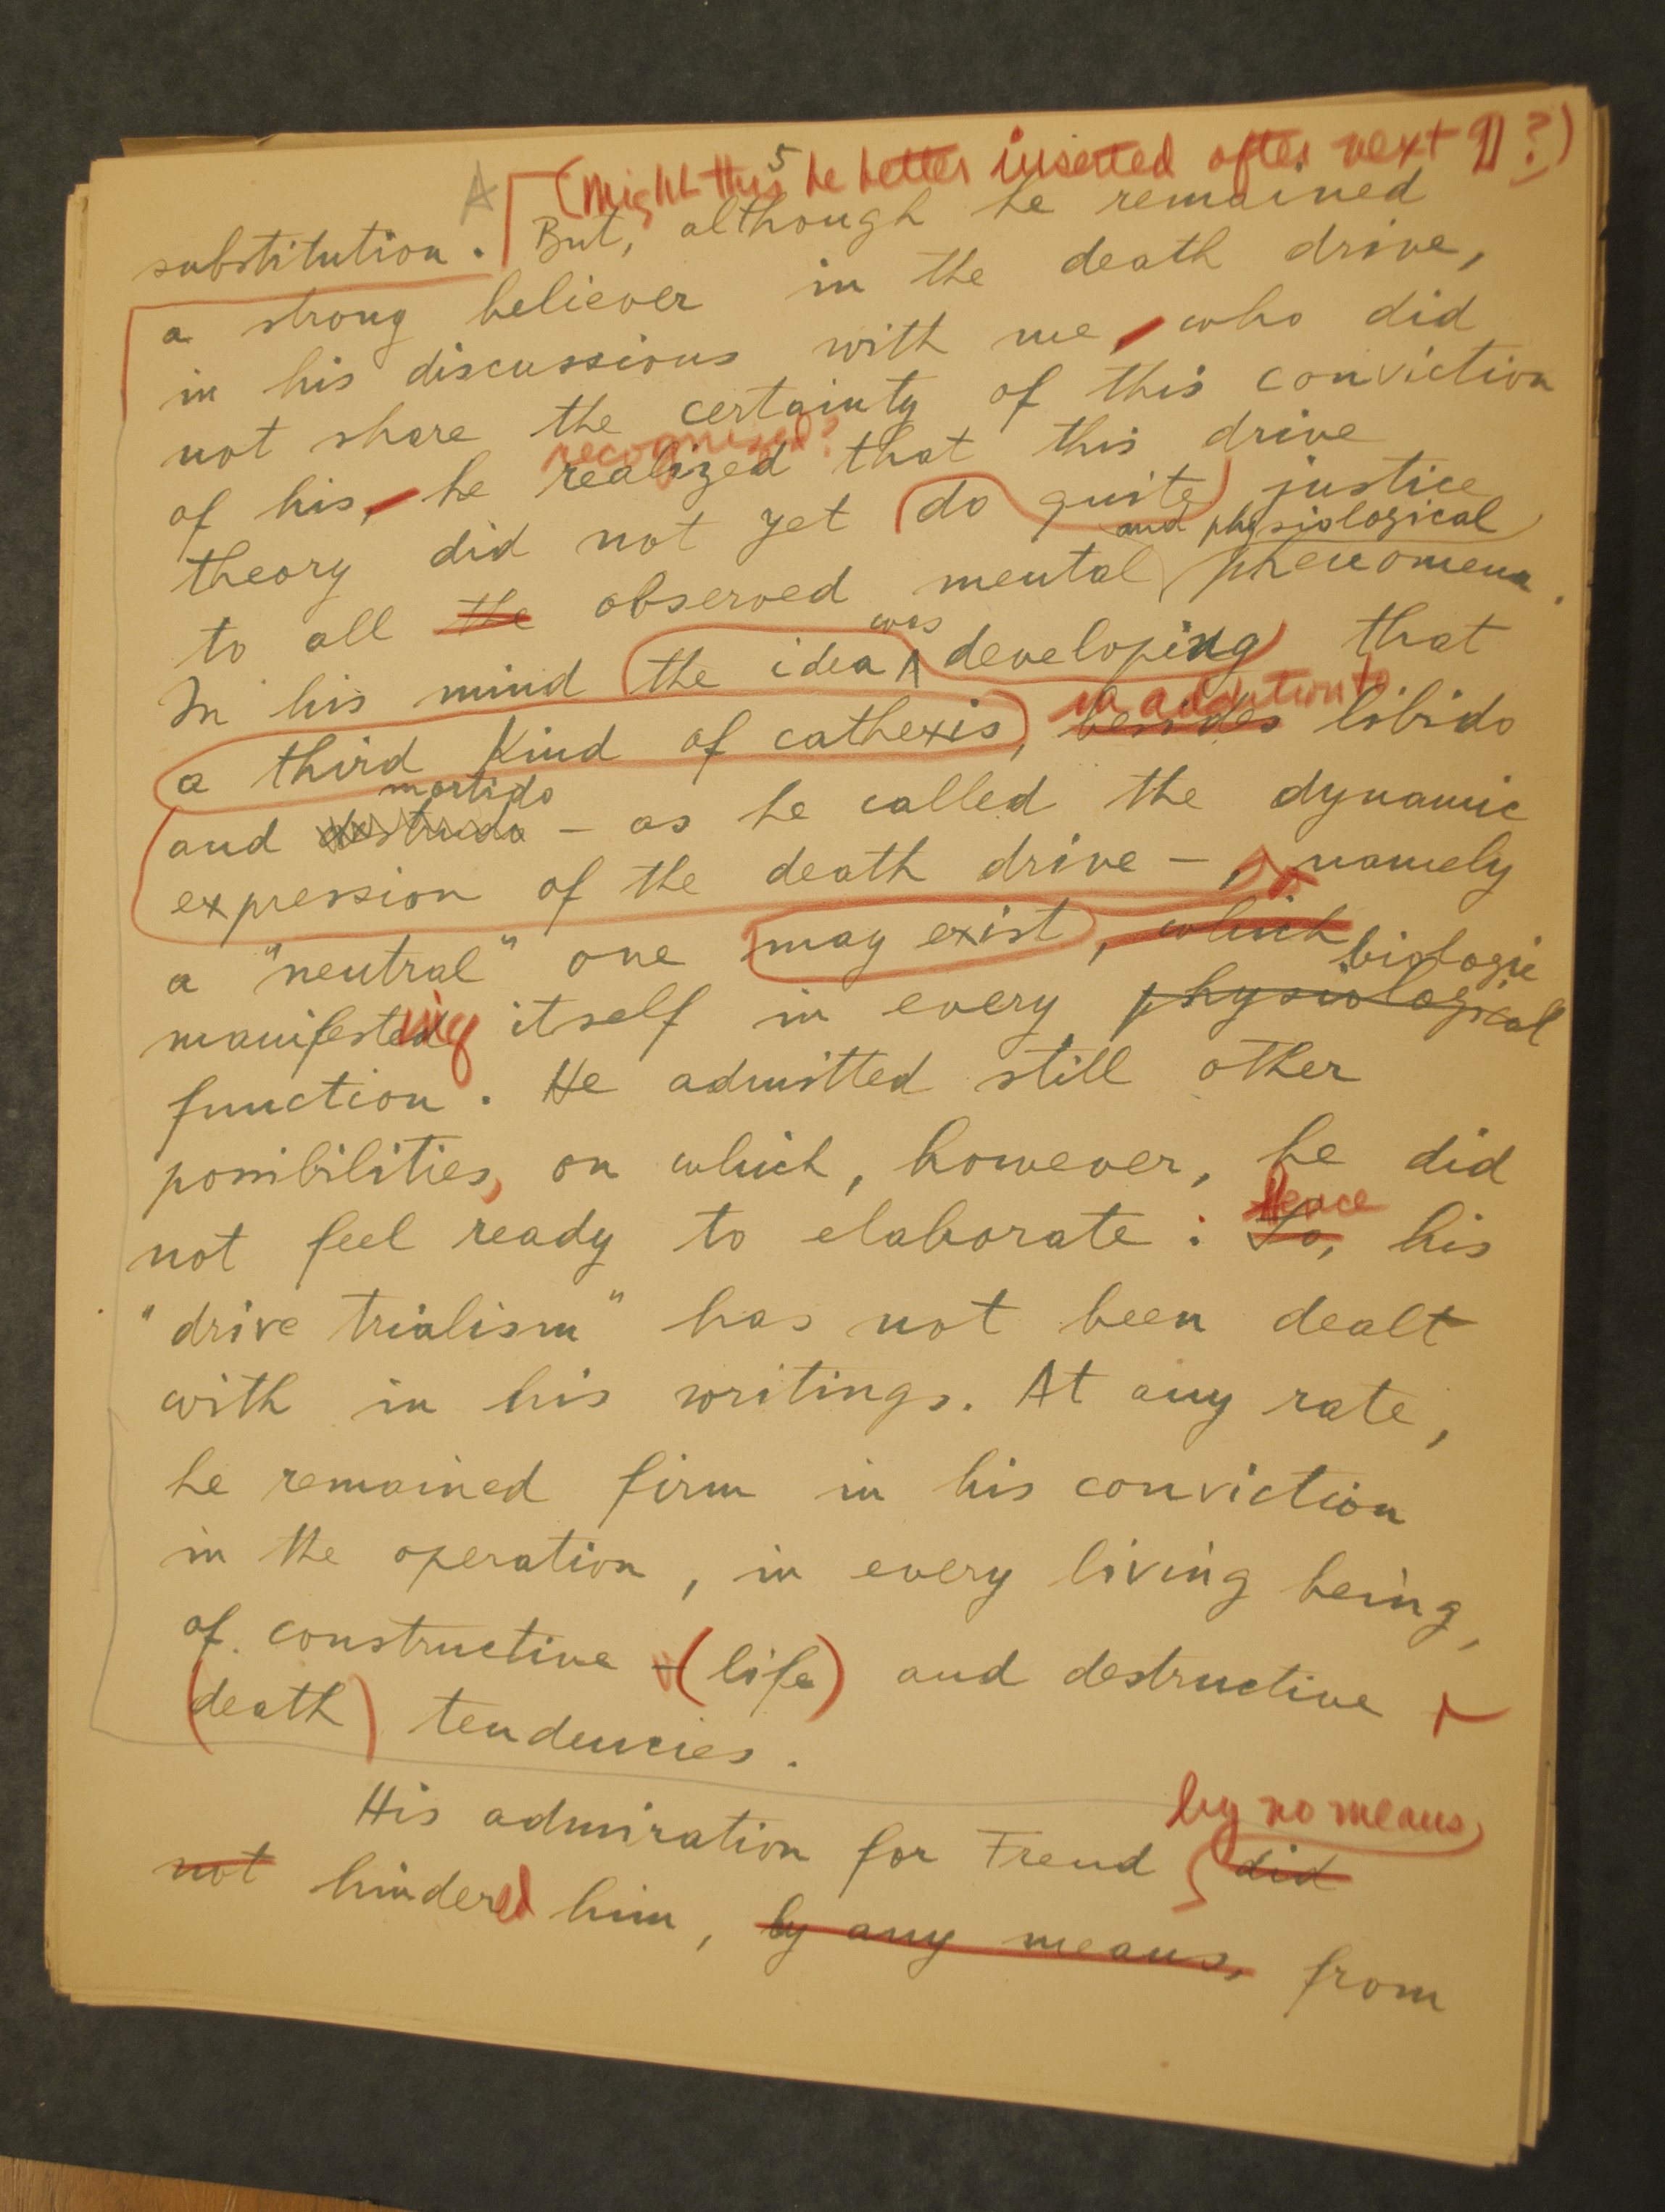 5
(Might this be better inserted after next ¶?)
A
substitution. But, although he remained
a strong believer in the death drive,
in his discussions with me, who did
not share the certainty of this conviction
recognized?
of his, he realized that this drive
theory did not yet do quite justice
and physiological
to all the observed mental phenomena.
was
In his mind the idea developing that
in addition to
a third kind of cathexis, besides libido
mortido
and destrudo - as he called the dynamic
expression of the death drive -, namely
a "neutral" one may exist, which
biologic
manifested ing itself in every physiological
function. He admitted still other
possibilities, on which, however, he did
Hence
not feel ready to elaborate: So, his
"drive trialism" has not been dealt
with in his writings. At any rate,
he remained firm in his conviction
in the operation, in every living being,
of constructive (life) and destructive
(death) tendencies.
by no means
His admiration for Freud did
not hindered him, by any means, from